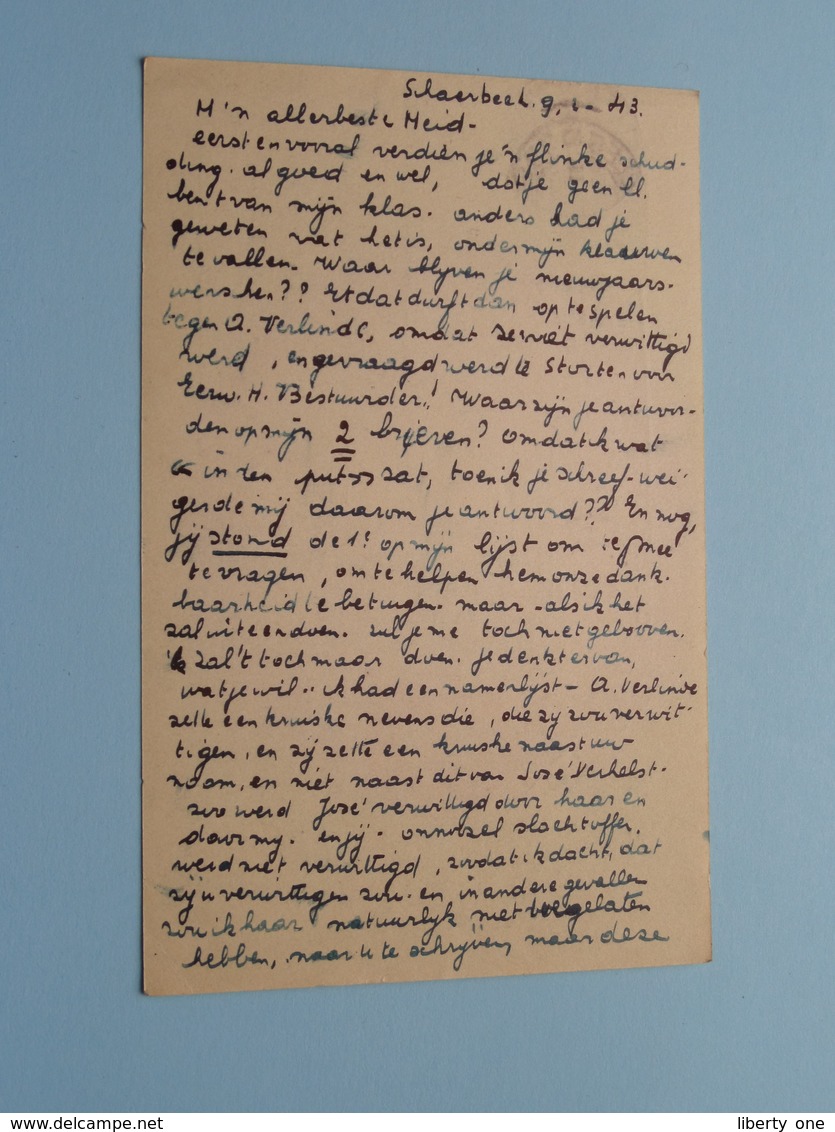 Schaerbeek. 9, 1 - 43.
M'n allerbeste Meid -
eerst en vooral verdien je 'n flinke schud-
ding. al goed en wel, dat je geen ll.
bent van mijn klas. anders had je
geweten wat het is, onder mijn klauwen
te vallen. Waar blijven je nieuwjaars-
wenschen?? Et dat durft dan op te spelen
tegen A. Verlinde, omdat ze niet verwittigd
werd, en gevraagd werd te storten voor
Eerw. H. Bestuurder.! Waar zijn je antwoor-
den op mijn 2 brieven? omdat ik wat
"in den put" zat, toen ik je schreef - wei-
gerde mij daarom je antwoord?? En nog,
jij stond de 1e op mijn lijst om te
te vragen, om te helpen hem onze dank-
baarheid te betuigen. maar - als ik het
zal uiteendoen. zul je me toch niet gelooven.
'k Zal 't toch maar doen. je denkt ervan,
wat je wil .. ik had een namenlijst - A. Verlinde
zette een kruiske nevens die, die zij zou verwit-
tigen, en zij zette een kruiske naast uw
naam, en niet naast dit van José Verhelst.
zoo werd José verwittigd door haar en
door my. en jij - onnoozel slachtoffer,
werd niet verwittigd, zoodat ik dacht, dat
zij u verwittigen zou. en in andere gevallen
zou ik haar natuurlyk niet toegelaten
hebben, naar u te schrijven, maar deze
liberty one